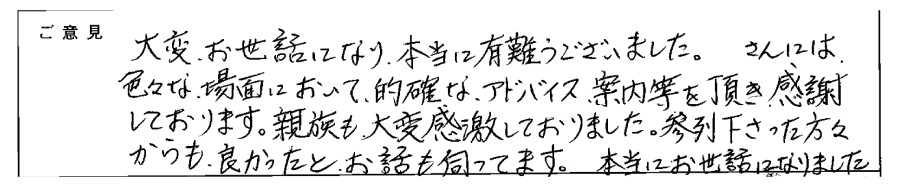 ご意見
大変、お世話になり、本当に有難うございました。 さんには、
色々な、場面において、的確な、アドバイス、案内等を頂き、感謝
しております。親族も、大変感激しておりました。参列下さった方々
からも、良かったと、お話も伺ってます。 本当にお世話になりました